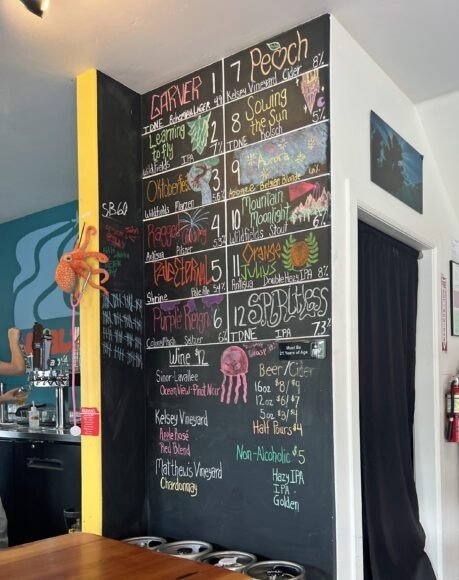 GARVER 1
TDNE Bohemian LAGER
Learning to fly 2
Wildfields IPA 7%
Oktoberfest 3
Wildfields Marzen
Ragged 4
Antigua Pilsner
5
Shrine Pale Ale
Purple Reign 6
Seltzer
7 Peach
Kelsey Vineyard Cider 8%
8 Sowing the Sun
TDNE Kolsch 5%
9 Aurora
Belgian Blonde
10 Mountain Moonlight
Wildfields Stout 6%
11 Orange Julius
Antigua Double Hazy IPA 8%
12 SPIRITLESS
TDNE IPA 7.3%
Wine $12
Sinor-Lavallee
Ocean View - Pinot Noir
Kelsey Vineyard
Apple Rosé
Red Blend
Matthews Vineyard
Chardonnay
Must Be
21 Years of Age
Beer / Cider
16oz $8/$9
12oz $6/$7
5oz $3/$4
Half Pours $4
Non-Alcoholic $5
Hazy IPA
IPA
Golden
SB60